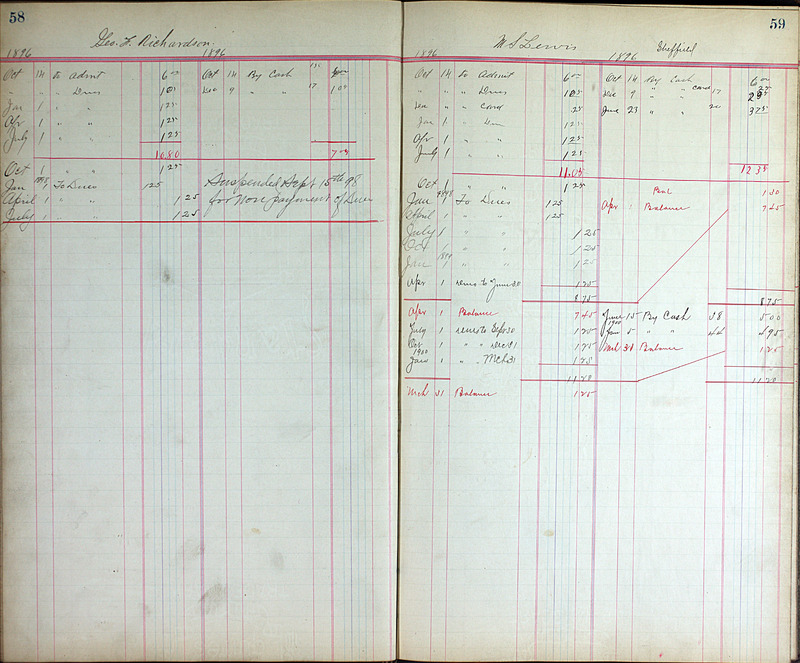 58
Geo. F. Richardson
1896 1896
Oct 14 To Admt 6 00 Oct 14 By Cash
" " " Dues 1 05 Dec 9 " " 17 1 05
Jan 1 " " 1 25
Apr 1 " " 1 25
July 1 " " 1 25
10.80
Oct 1 " " 1 25
1898
Jan 1 To Dues 1 25 Suspended Sept 15th 98
April 1 " " 1 25 for Non payment of Dues
July 1 " " 1 25
59
M S Lewis Sheffield
1896 1896
Oct 14 To Admt 6 00 Oct 14 By Cash 6 00
" " " Dues 1 05 Dec 9 " " 17
Dec " " Cond 25 June 23 " " 3 75
Jan 1 " Dues 1 25
Apr 1 " " 1 25
July 1 " " 1 25
11.05 12 35
Oct 1 " " 1 25 1 30
Jan 1 To Dues 1 25 Apr 1 Balance 7 45
April 1 " " 1 25
July 1 " " 1 25
Oct 1 " " 1 25
1899
Jan 1 " " 1 25
Apr 1 Dues to June 30 1 25
8 75 8 75
Apr 1 Balance 7 45 June 15 By Cash 38 5 00
July 1 Dues to Sep 30 1 25 1900 Jan 5 " " 44 4 95
Oct 1 " " Dec 31 1 25 Mch 31 Balance 1 25
1900
Jan 1 " " Mch 31 1 25
11 20 11 20
Mch 31 Balance 1 25